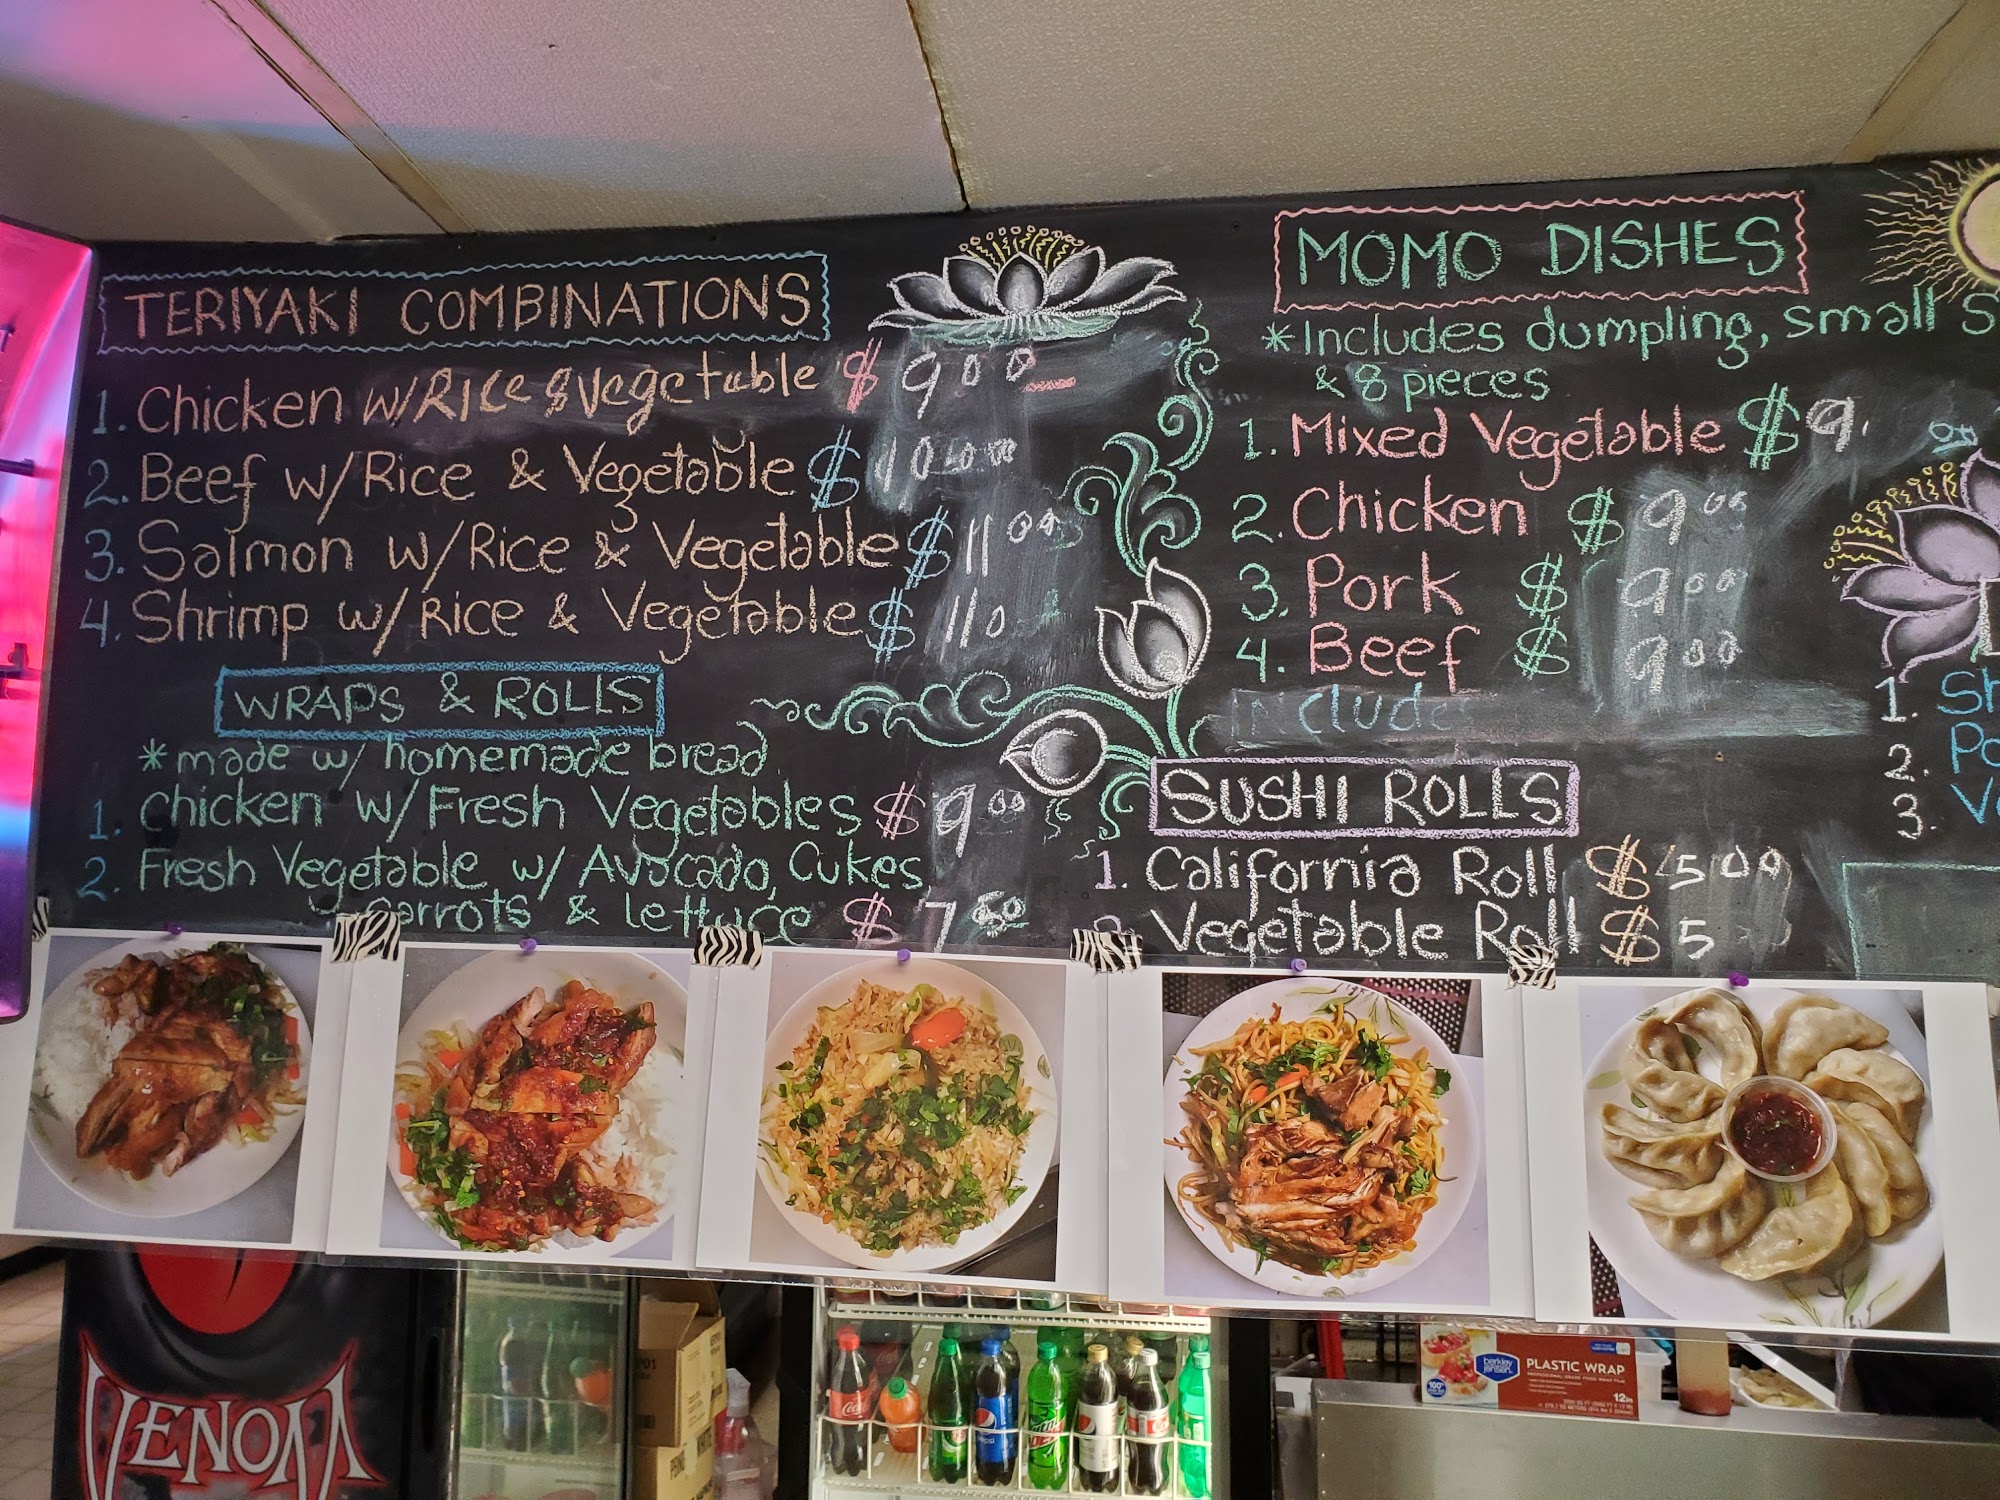 TERIYAKI COMBINATIONS
1. Chicken w/RICe & Vegetable $ 9 00
2. Beef w/Rice & Vegetable $ 10.00
3. Salmon w/Rice & Vegetable $ 11 00
4. Shrimp w/Rice & Vegetable $ 11 0
WRAPS & ROLLS
*made w/ homemade bread
1. Chicken w/Fresh Vegetables $ 9 00
2. Fresh Vegetable w/ Avocado, Cukes,
carrots & lettuce $ 7 50
MOMO DISHES
*Includes dumpling, small S
& 8 pieces
1. Mixed Vegetable $ 9.
2. Chicken $ 9 00
3. Pork $ 9 00
4. Beef $ 9 00
include
SUSHI ROLLS
1. California Roll $ 5 00
Vegetable Roll $ 5
1. Sh
2. Po
3. Ve
VENOM
Coca-Cola
pepsi
berkley jensen
PLASTIC WRAP
12in